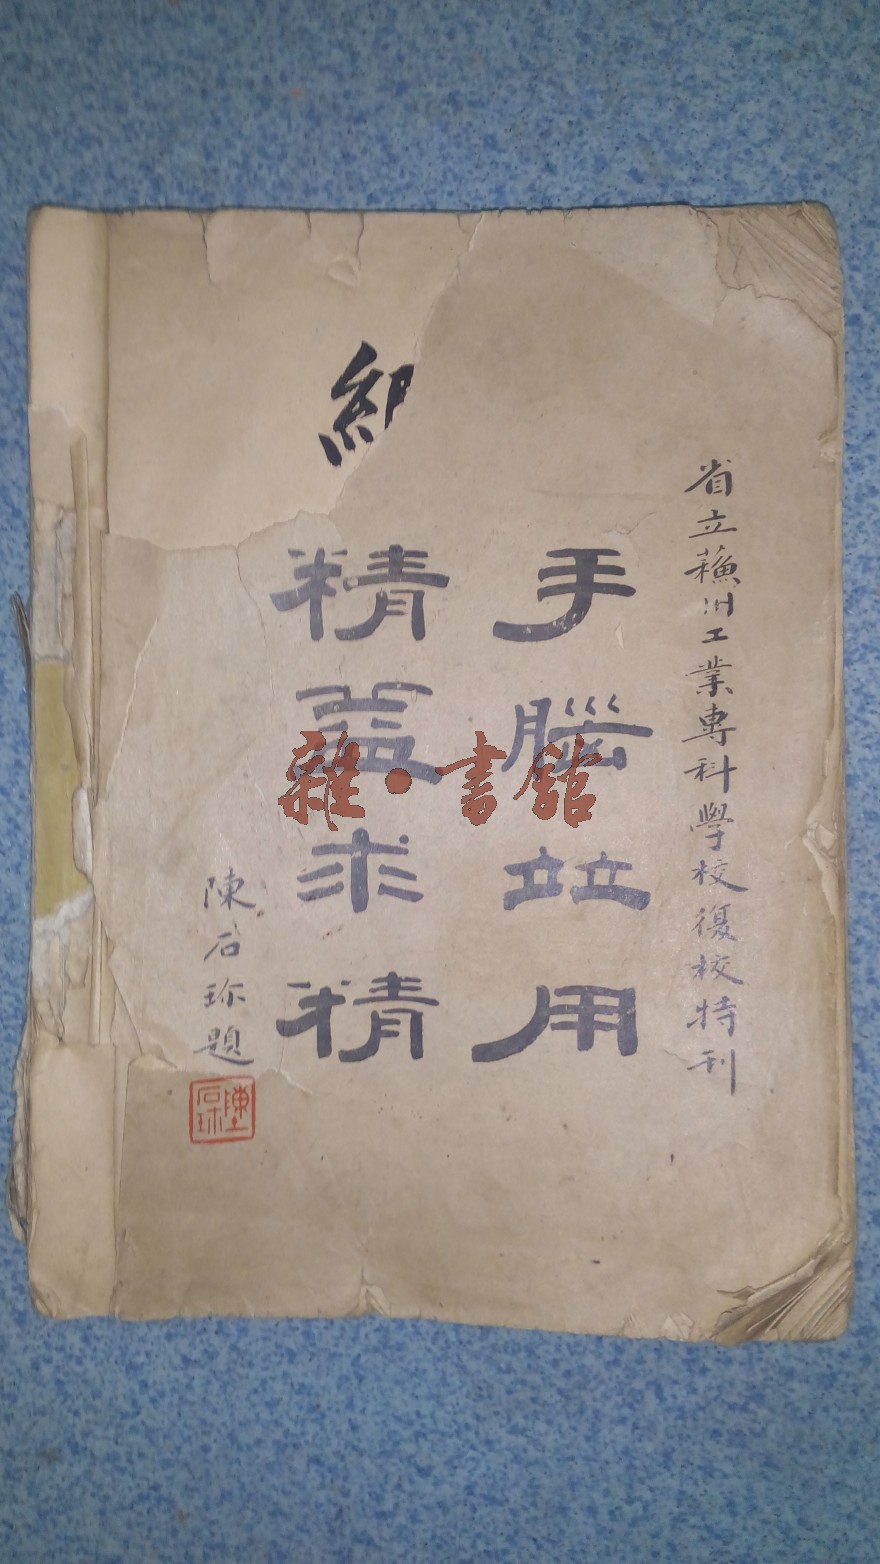 省立蘓州工業專科學校復校特刊
手腦竝用
精益求精
陳石珍題
陳石珍
雜·書館